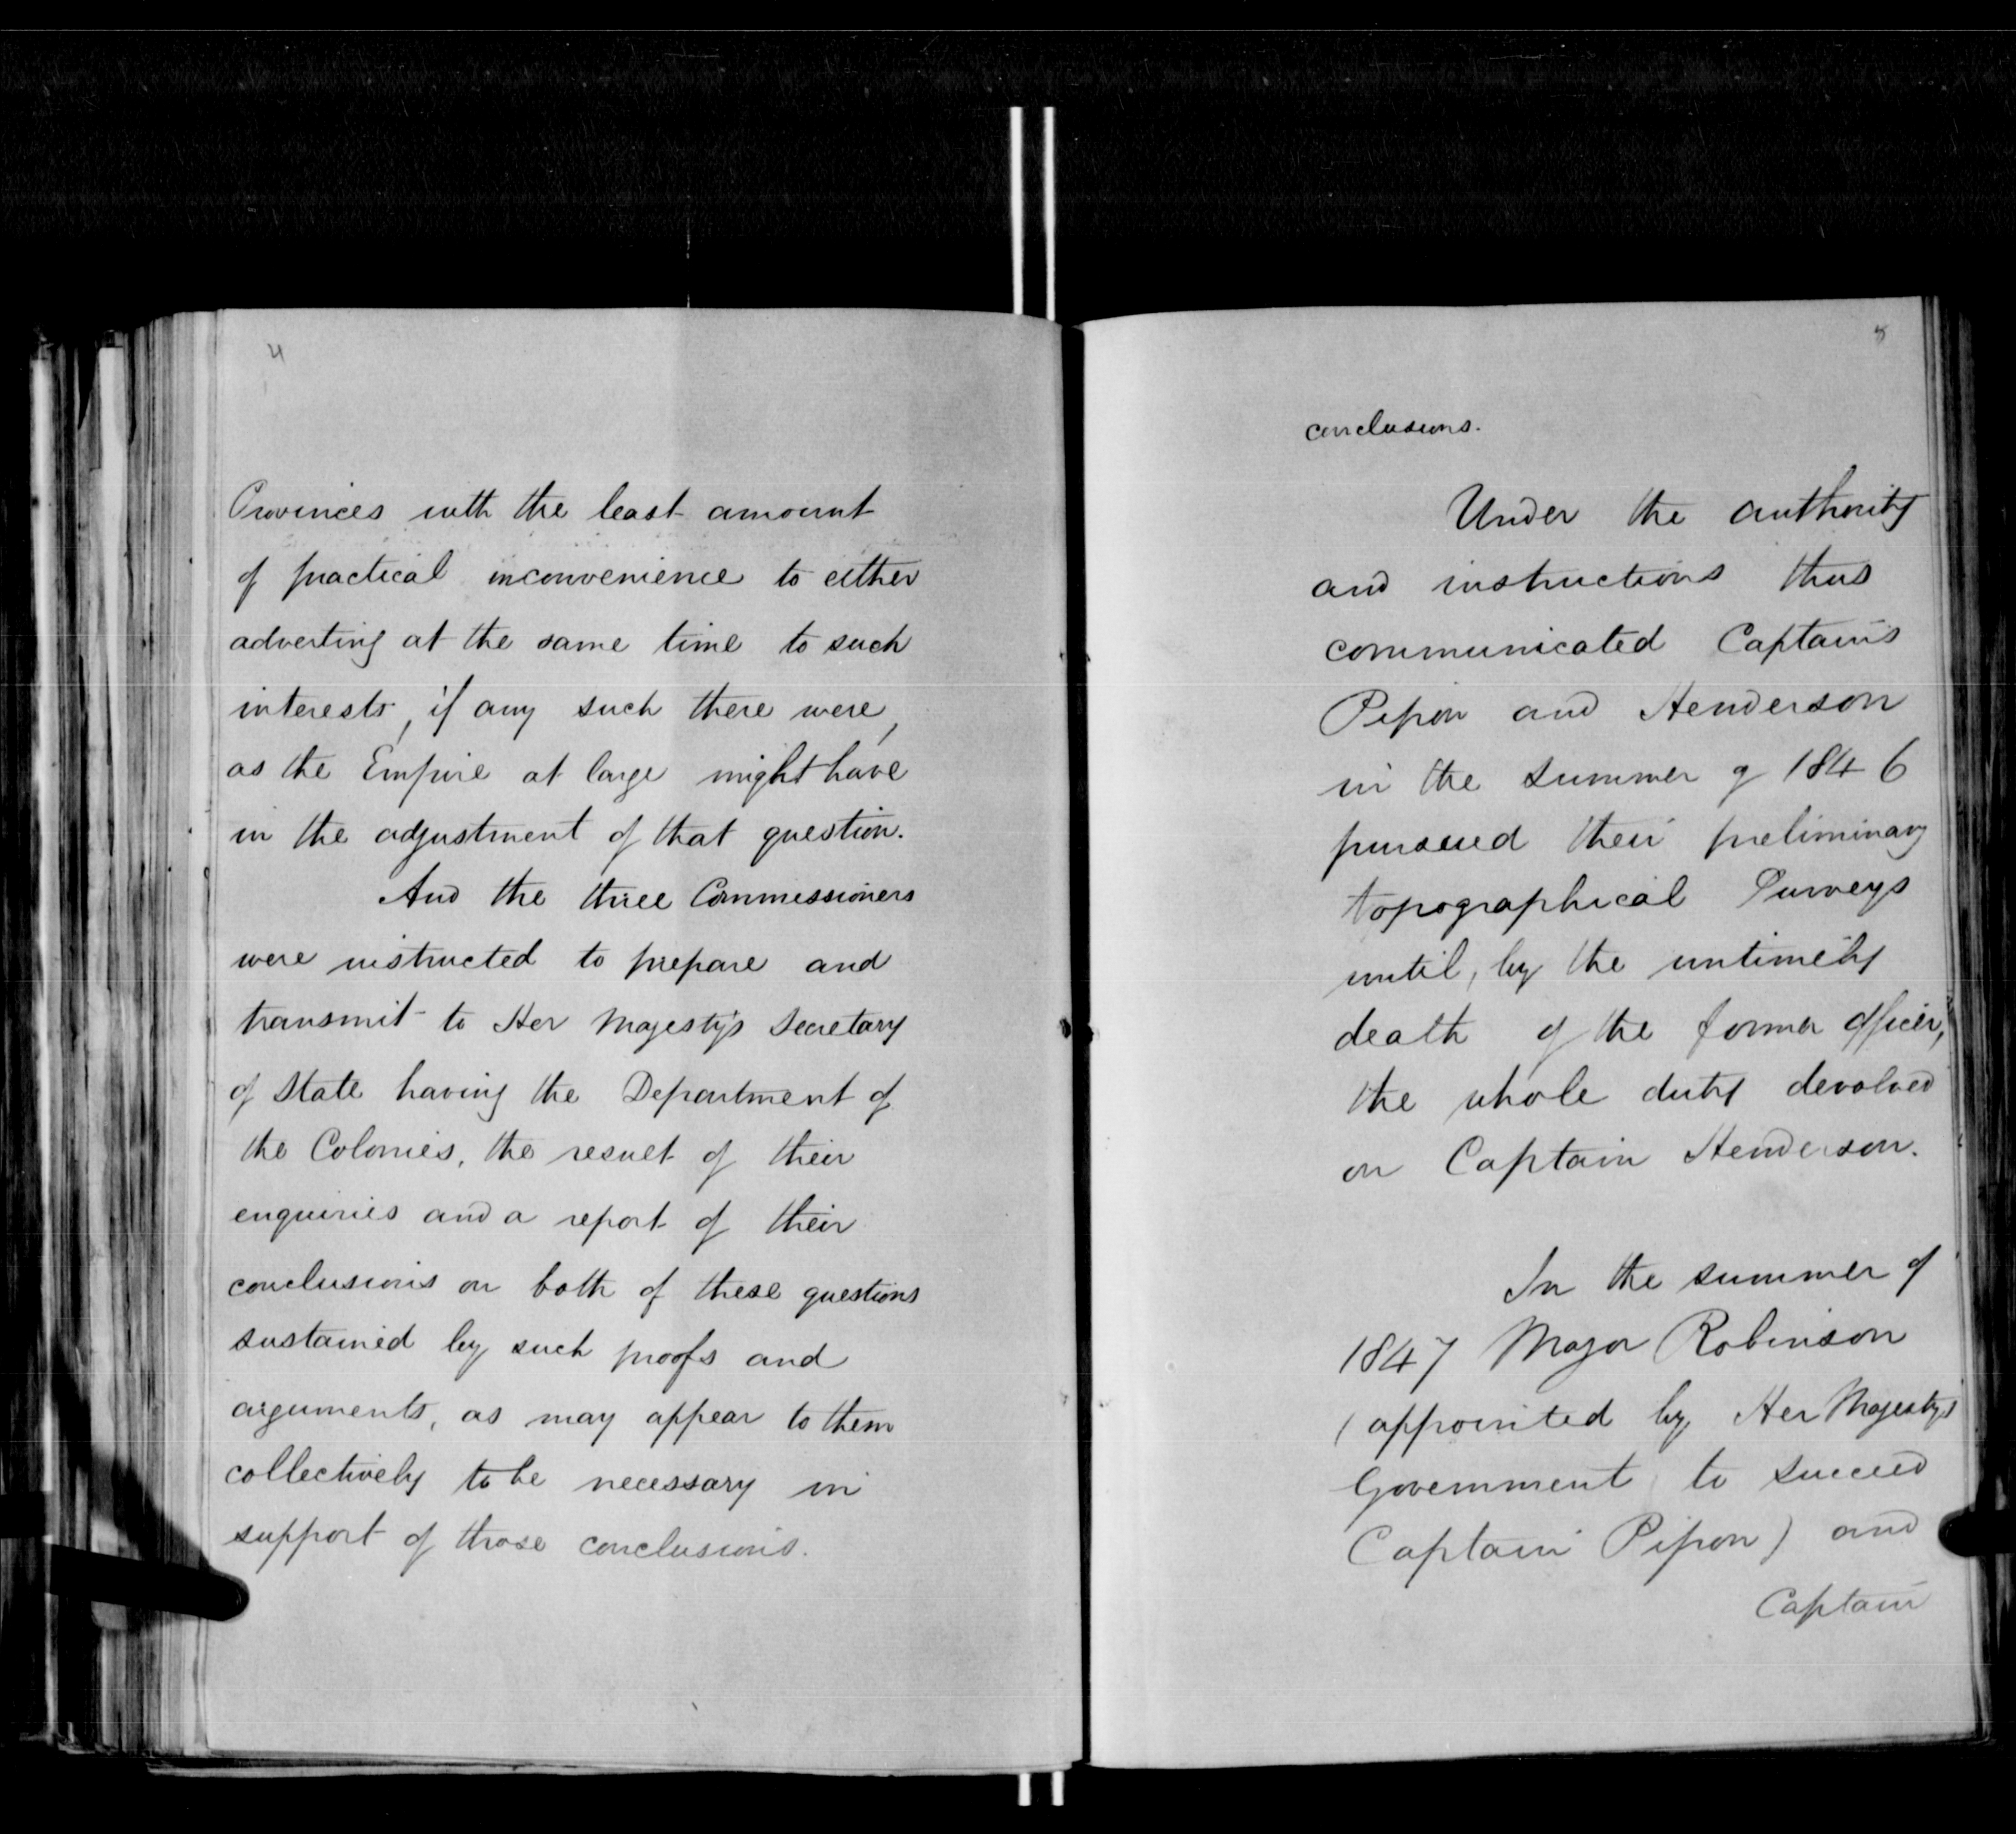 4
Provinces with the least amount
of practical inconvenience to either
adverting at the same time to such
interests, if any such there were,
as the Empire at large might have
in the adjustment of that question.
And the three Commissioners
were instructed to prepare and
transmit to Her Majesty's Secretary
of State having the Department of
the Colonies, the result of their
enquiries and a report of their
conclusions on both of these questions
sustained by such proofs and
arguments, as may appear to them
collectively to be necessary in
support of those conclusions.
5
conclusions.
Under the authority
and instructions thus
communicated Captains
Pipon and Henderson
in the summer of 1846
pursued their preliminary
topographical Surveys
until, by the untimely
death of the former officer,
the whole duty devolved
on Captain Henderson.
In the summer of
1847 Major Robinson
(appointed by Her Majesty's
Government to succeed
Captain Pipon) and
Captain